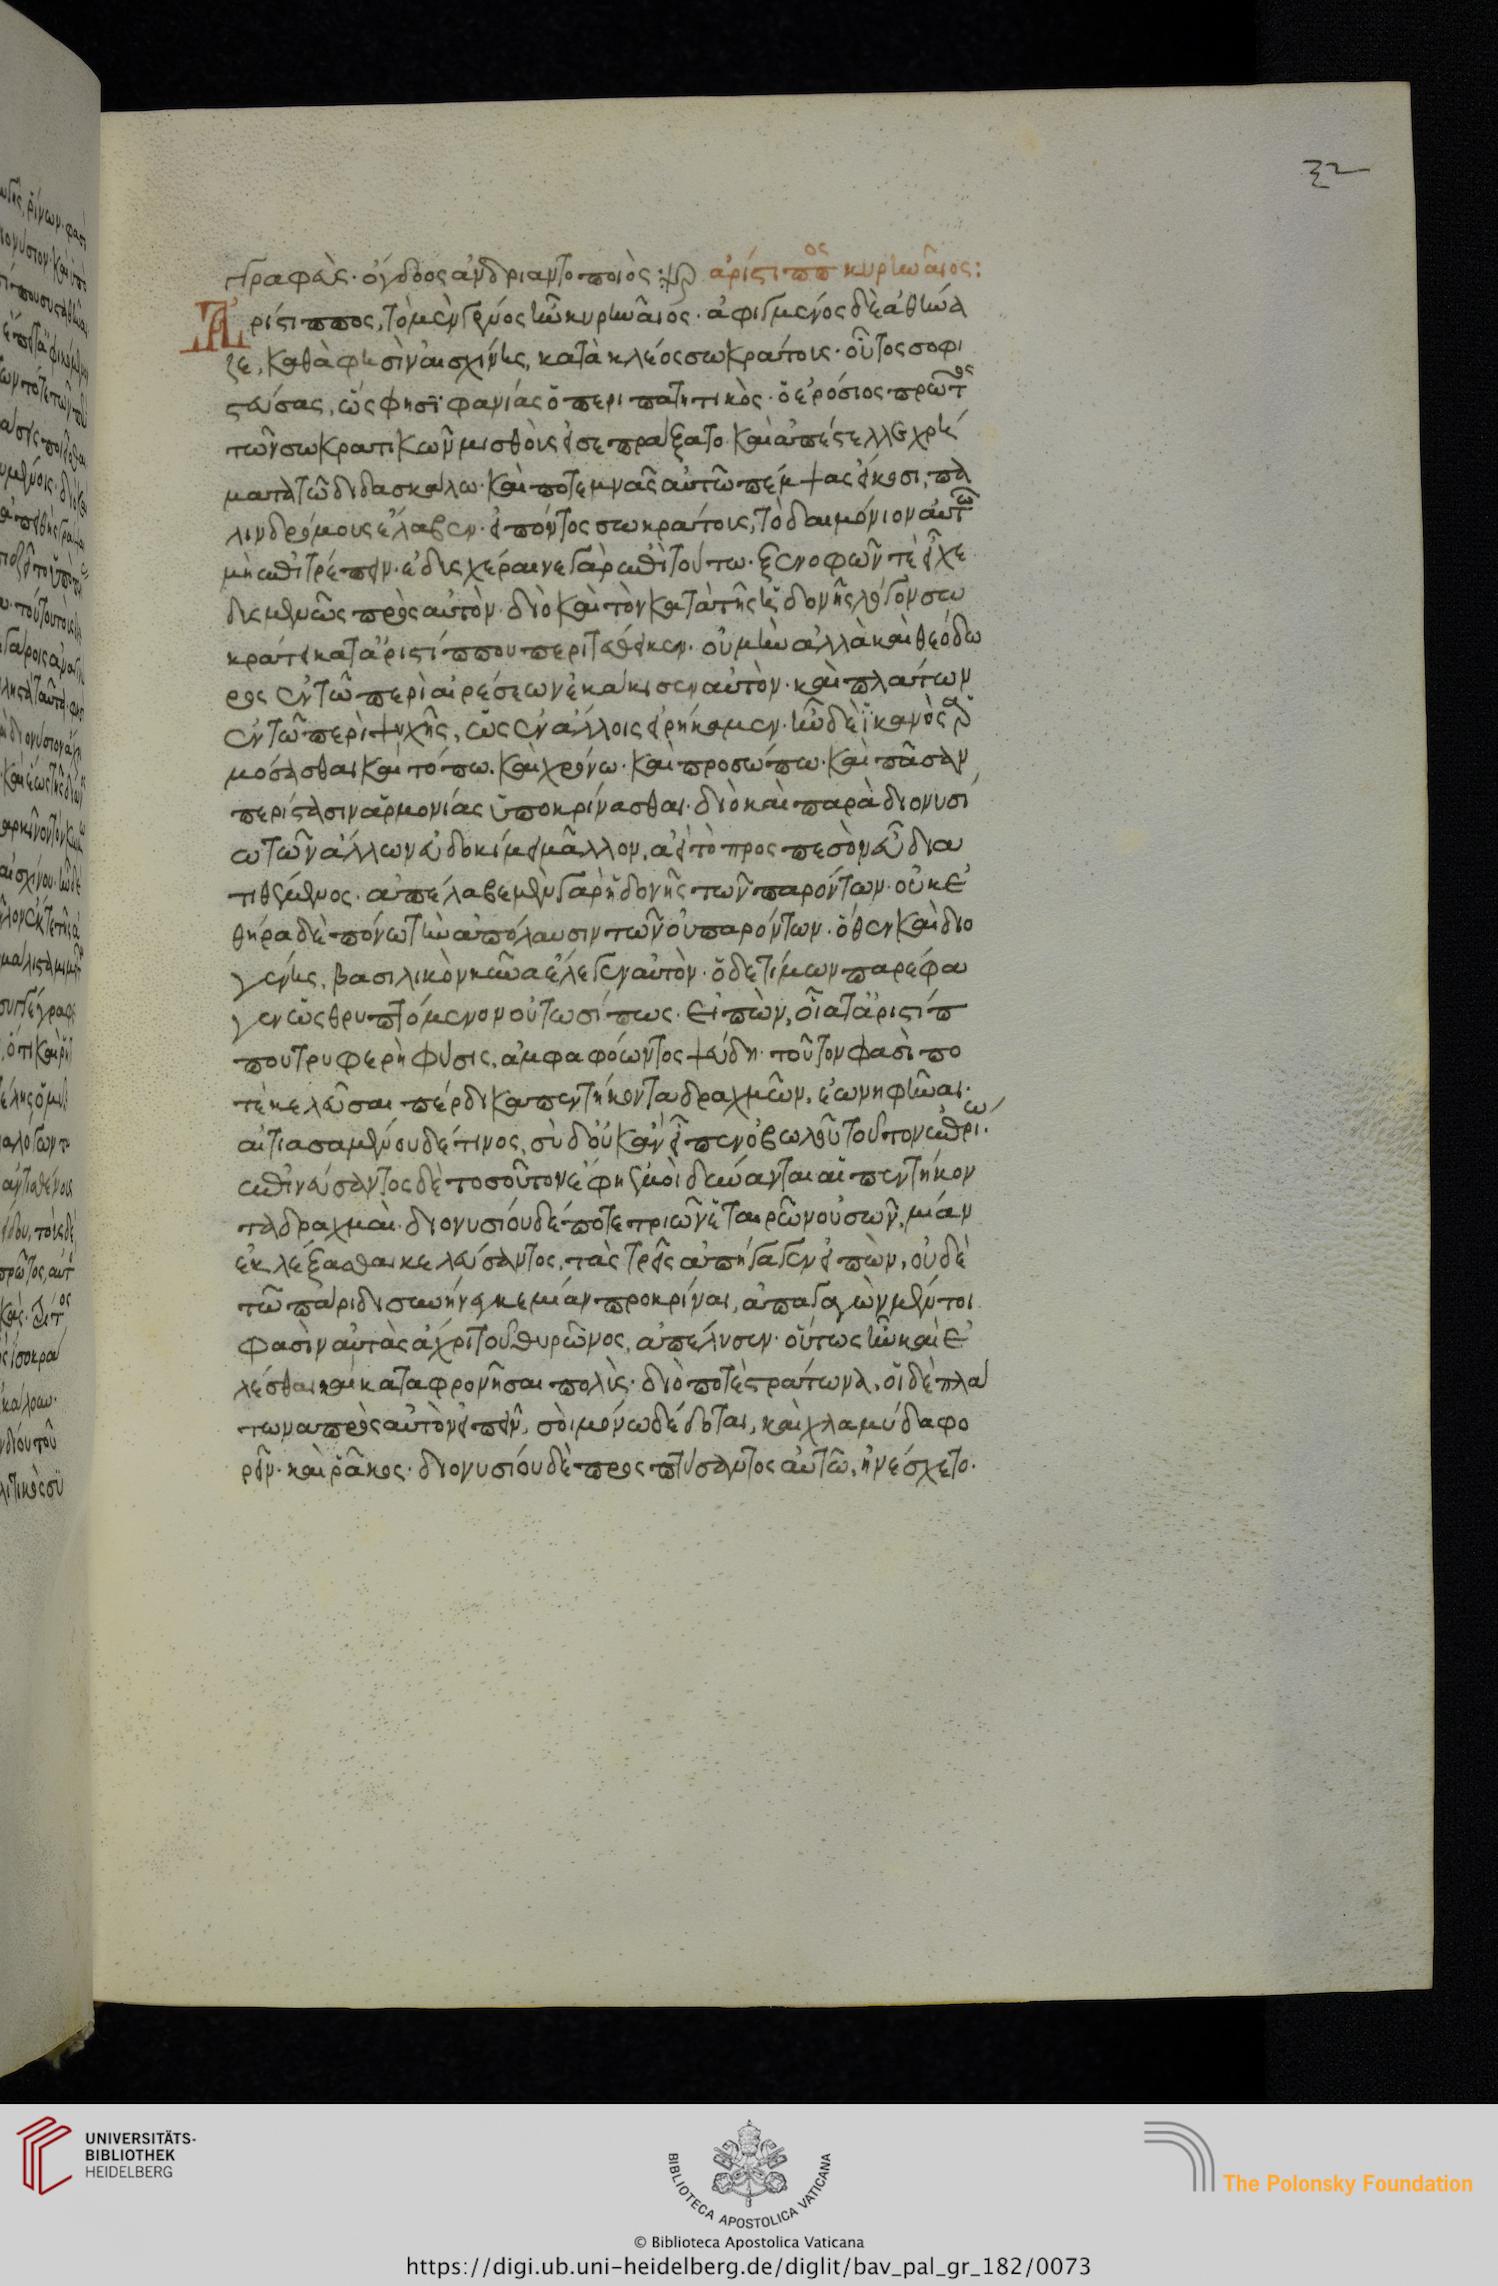 32
γραφὰς· ὄγδοος ἀνδριαντοποιὸς: ἀρίστιππος κυρηναῖος:
Ἀρίστιππος, τὸ μὲν γένος ἦν κυρηναῖος· ἀφιγμένος δὲ ἀθήνα
ζε, καθά φησιν αἰσχίνης, κατὰ κλέος σωκράτους· οὗτος σοφι
στεύσας, ὥς φησὶ φανίας ὁ περιπατητικὸς· ὁ ἐρέσιος πρῶτος
τῶν σωκρατικῶν μισθοὺς εἰσεπράξατο· καὶ ἀπέστελλε χρή
ματα τῶ διδασκάλω· καὶ ποτε μνᾶς αὐτῶ πέμψας εἴκοσι, πα
λινδρόμους ἔλαβεν· εἰπόντος σωκράτους, τὸ δαιμόνιον αὐτῶ
μὴ ἐπιτρέπειν· ἐδυσχέραινε γὰρ ἐπὶ τούτω· ξενοφῶν τὲ εἶχε
δυσμενῶς πρὸς αὐτὸν· διὸ καὶ τὸν κατὰ τῆς ἡδονῆς λόγον σω
κράτει κατ' ἀριστίππου περιτέθεικεν· οὐ μὴν ἀλλὰ καὶ θεόδω
ρος ἐν τῶ περὶ αἱρέσεων ἐκάκισεν αὐτὸν· καὶ πλάτων
ἐν τῶ περὶ ψυχῆς, ὡς ἐν ἄλλοις εἰρήκαμεν· ἦν δὲ ἱκανὸς ἁρ
μόσασθαι καὶ τόπω· καὶ χρόνω· καὶ προσώπω· καὶ πᾶσαν
περίστασιν ἁρμονίας ὑποκρίνασθαι· διὸ καὶ παρὰ διονυσί
ω τῶν ἄλλων εὐδοκίμει μᾶλλον, ἀεὶ τὸ προσπεσὸν εὖ δια
τιθέμενος· ἀπέλαβε μὲν γὰρ ἡδονῆς τῶν παρόντων· οὐκ ἐ
θήρα δὲ πόνω τὴν ἀπόλαυσιν τῶν οὐ παρόντων· ὅθεν καὶ διο
γένης, βασιλικὸν κύνα ἔλεγεν αὐτὸν· ὁ δὲ τίμων παρέφα
γεν ὡς θρυπτόμενον οὑτωσί πως· εἰπὼν, οἷα τ' ἀριστίπ
που τρυφερὴ φύσις, ἀμφαφόωντος ψεύδη· τοῦτον φασὶ πο
τὲ κελεῦσαι πέρδικα πεντήκοντα δραχμῶν, ἐωνηθῆναι·
αἰτιασαμένου δέ τινος, σὺ δ' οὐκ ἂν εἶπεν ὀβωλοῦ τοῦτον ἐπρίω·
ἐπινεύσαντος δὲ τοσοῦτον ἔφη ἐμοὶ δύνανται αἱ πεντήκον
τα δραχμαὶ· διονυσίου δέ ποτε τριῶν ἑταιρῶν οὐσῶν, μίαν
ἐκλέξασθαι κελεύσαντος, τὰς τρεῖς ἀπήγαγεν εἰπὼν, οὐδὲ
τῶ πάριδι συνήνεγκε μίαν προκρίναι, ἀπαγαγὼν μέντοι
φασὶν αὐτὰς ἄχρι τοῦ θυρῶνος, ἀπέλυσεν· οὕτως ἦν καὶ ἑ
λέσθαι καὶ καταφρονῆσαι πολὺς· διὸ ποτὲ στράτωνα, οἱ δὲ πλά
τωνα πρὸς αὐτὸν εἰπεῖν, σοὶ μόνω δέδοται, καὶ χλαμύδα φο
ρεῖν· καὶ ῥάκος· διονυσίου δὲ προσπτύσαντος αὐτῶ, ἠνέσχετο·
UNIVERSITÄTS-
BIBLIOTHEK
HEIDELBERG
BIBLIOTECA APOSTOLICA VATICANA
The Polonsky Foundation
© Biblioteca Apostolica Vaticana
https://digi.ub.uni-heidelberg.de/diglit/bav_pal_gr_182/0073